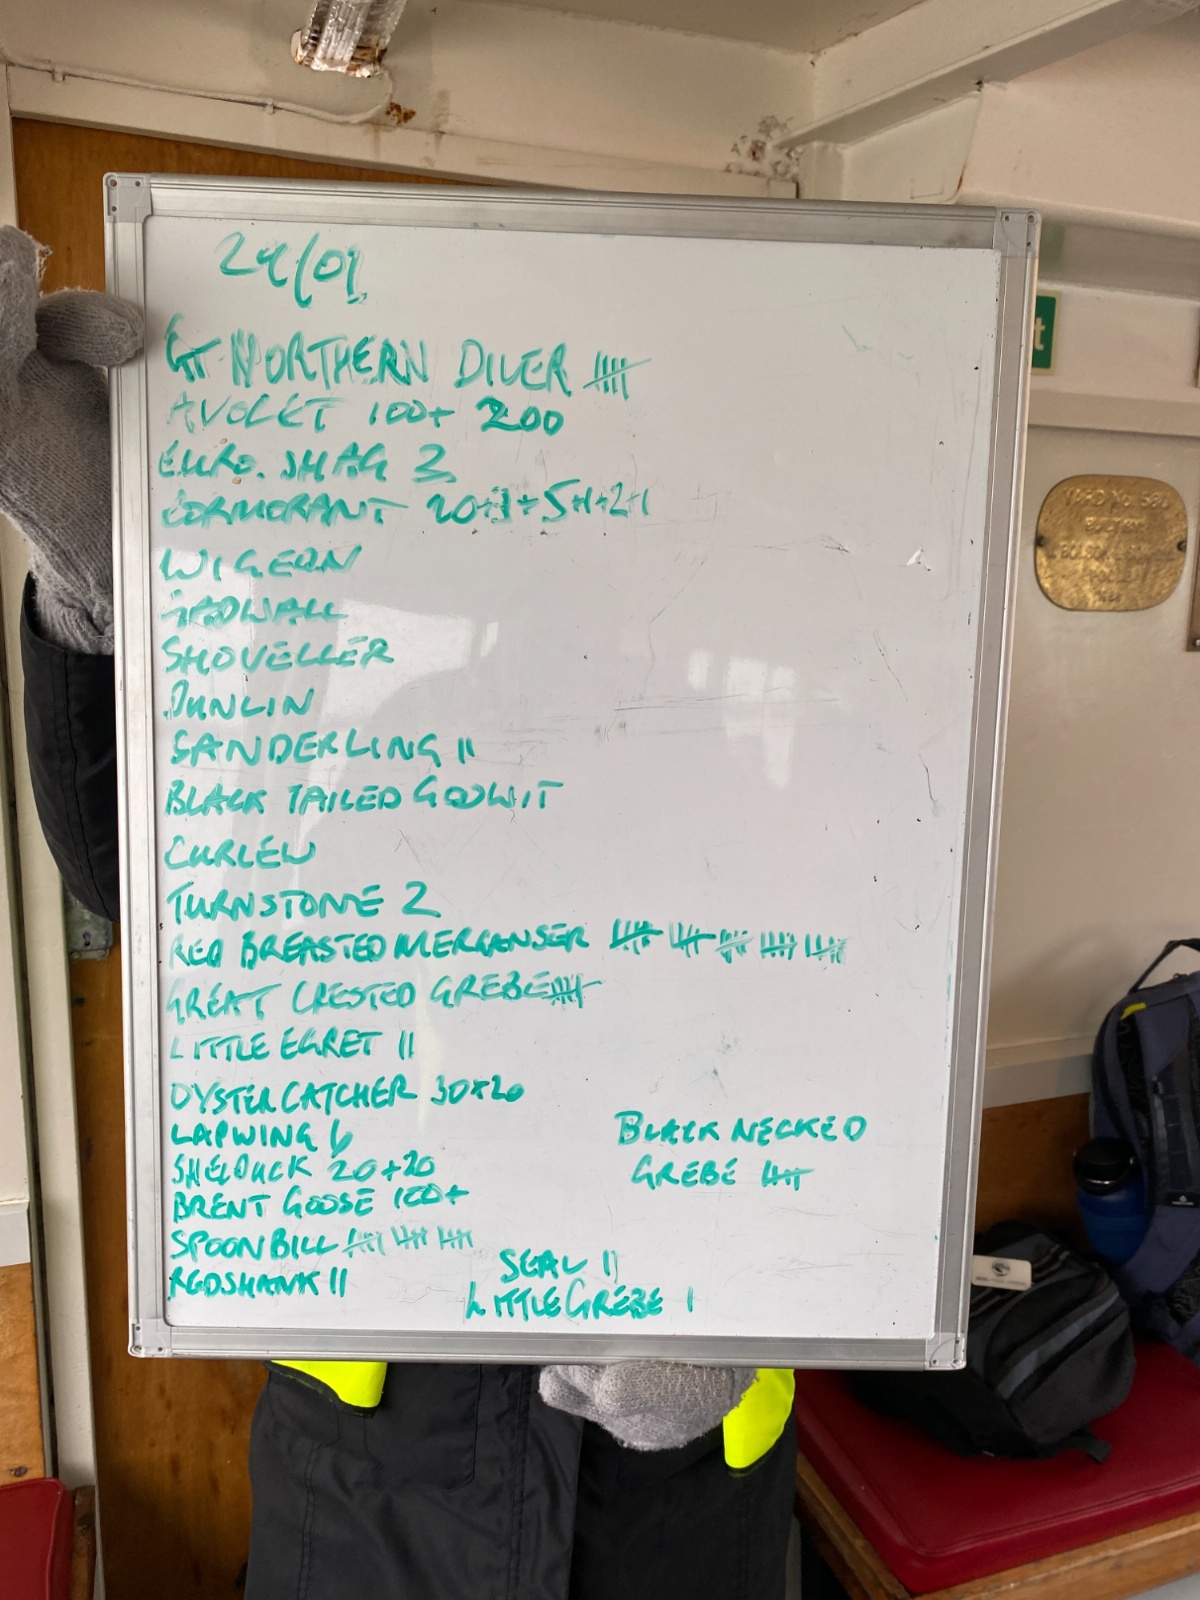 24/01
GT NORTHERN DIVER 𝍸
AVOCET 100+ 200
EURO. SHAG 3
CORMORANT 20+1+5+1+2+1
WIGEON
GADWALL
SHOVELLER
DUNLIN
SANDERLING II
BLACK TAILED GODWIT
CURLEW
TURNSTONE 2
RED BREASTED MERGANSER 𝍸 𝍸 𝍸 𝍸 𝍸
GREAT CRESTED GREBE 𝍸
LITTLE EGRET II
OYSTERCATCHER 30+20
LAPWING 6
SHELDUCK 20+20
BRENT GOOSE 100+
SPOONBILL 𝍸 𝍸 𝍸
REDSHANK II
BLACK NECKED
GREBE 𝍸
SEAL II
LITTLE GREBE I
YARD No 580